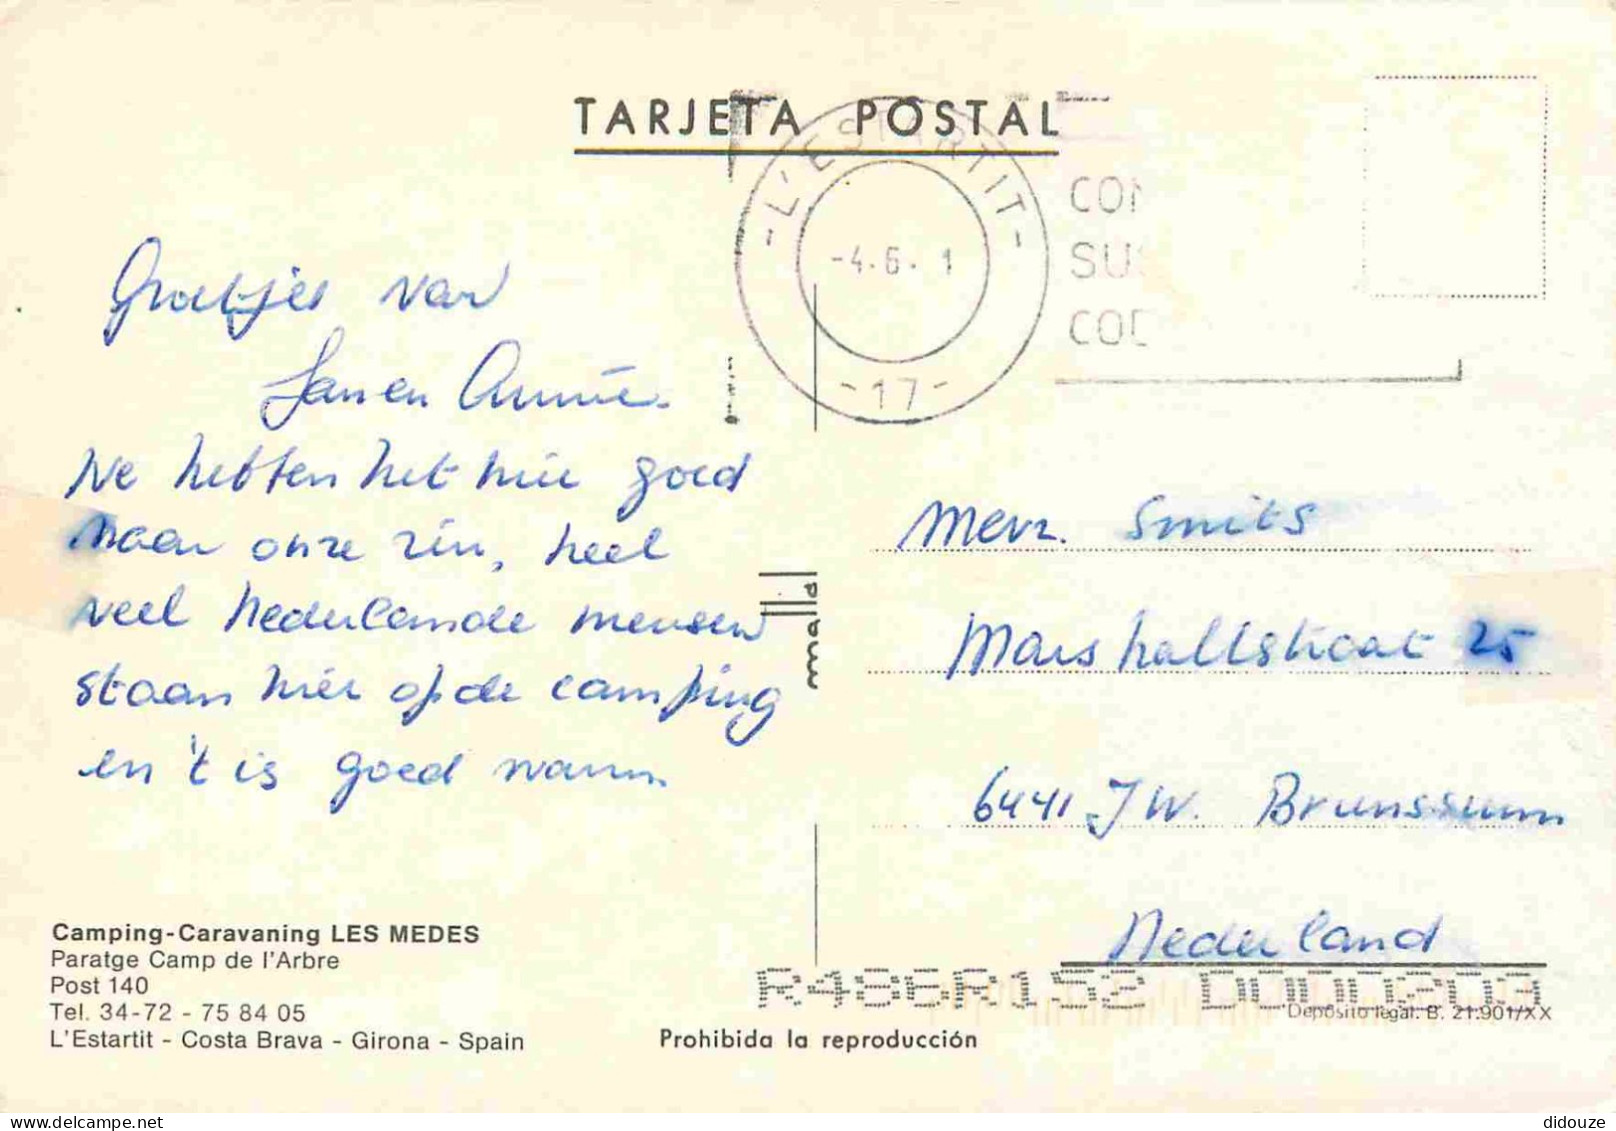 TARJETA POSTAL
- L'ESTARTIT -
-4.6. 1
-17-
CON
SUS
COD
Groetjes van
Jan en Annie.
We hebben het hier goed
naar onze zin, heel
veel Nederlandse mensen
staan hier op de camping
en 't is goed warm.
malla
Mevr. Smits
Marshallstraat 25
6441 JW. Brunssum
Nederland
Camping-Caravaning LES MEDES
Paratge Camp de l'Arbre
Post 140
Tel. 34-72 - 75 84 05
L'Estartit - Costa Brava - Girona - Spain
Prohibida la reproducción
R486R152 0000203
Depósito legal. B. 21.901/XX
didouze